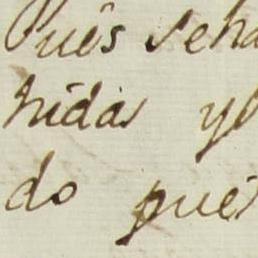 Pués seha
hidas y
do pués